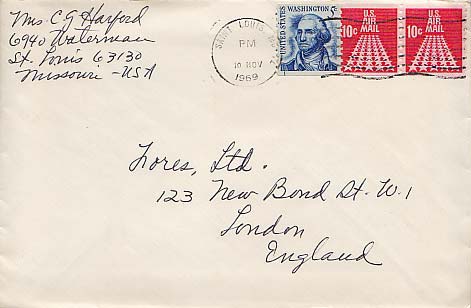 Mrs C G Harford
6940 Waterman
St. Louis 63130
Missouri - USA
SAINT LOUIS, MO
PM
10 NOV
1969
UNITED STATES
WASHINGTON 5c
U.S. AIR MAIL
10c
U.S. AIR MAIL
10c
Fores, Ltd.
123 New Bond St. W.1
London
England